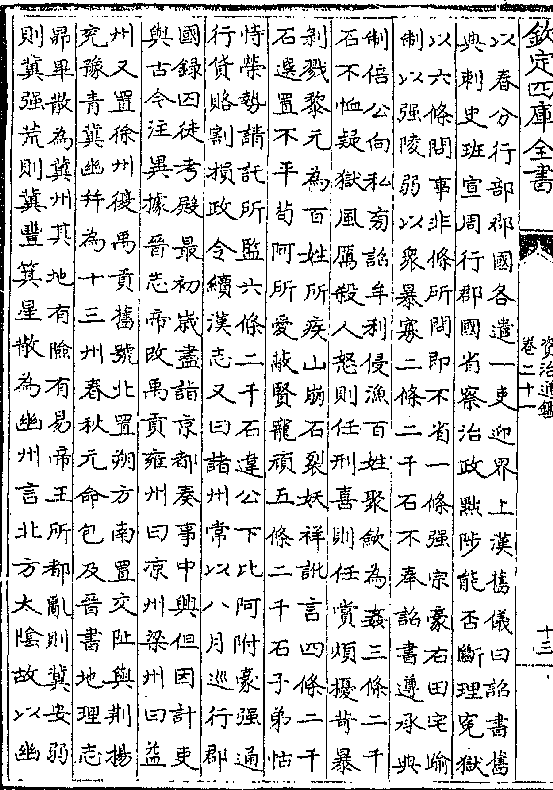 欽定四庫全書
資治通鑑
卷二十一
十三
以春分行部郡國各遣一吏迎界上漢舊儀曰詔書舊
典刺史班宣周行郡國省察治政黜陟能否斷理寃獄
以六條問事非條所問即不省一條强宗豪右田宅踰
制以强陵弱以衆暴寡二條二千石不奉詔書遵承典
制倍公向私旁詔牟利侵漁百姓聚歛為姦三條二千
石不恤疑獄風厲殺人怒則任刑喜則任賞煩擾苛暴
剝戮黎元為百姓所疾山崩石裂妖祥訛言四條二千
石選置不平苟阿所愛蔽賢寵頑五條二千石子弟怙
恃榮勢請託所監六條二千石違公下比阿附豪强通
行貨賂割損政令續漢志又曰諸州常以八月巡行郡
國録囚徒考殿最初歳盡詣京都奏事中興但因計吏
與古今注異據晉志帝改禹貢雍州曰凉州梁州曰益
州又置徐州復禹貢舊號北置朔方南置交阯與荆揚
兖豫青冀幽并為十三州春秋元命包及晉書地理志
昴畢散為冀州其地有險有易帝王所都亂則冀安弱
則冀强荒則冀豐箕星散為幽州言北方太隂故以幽